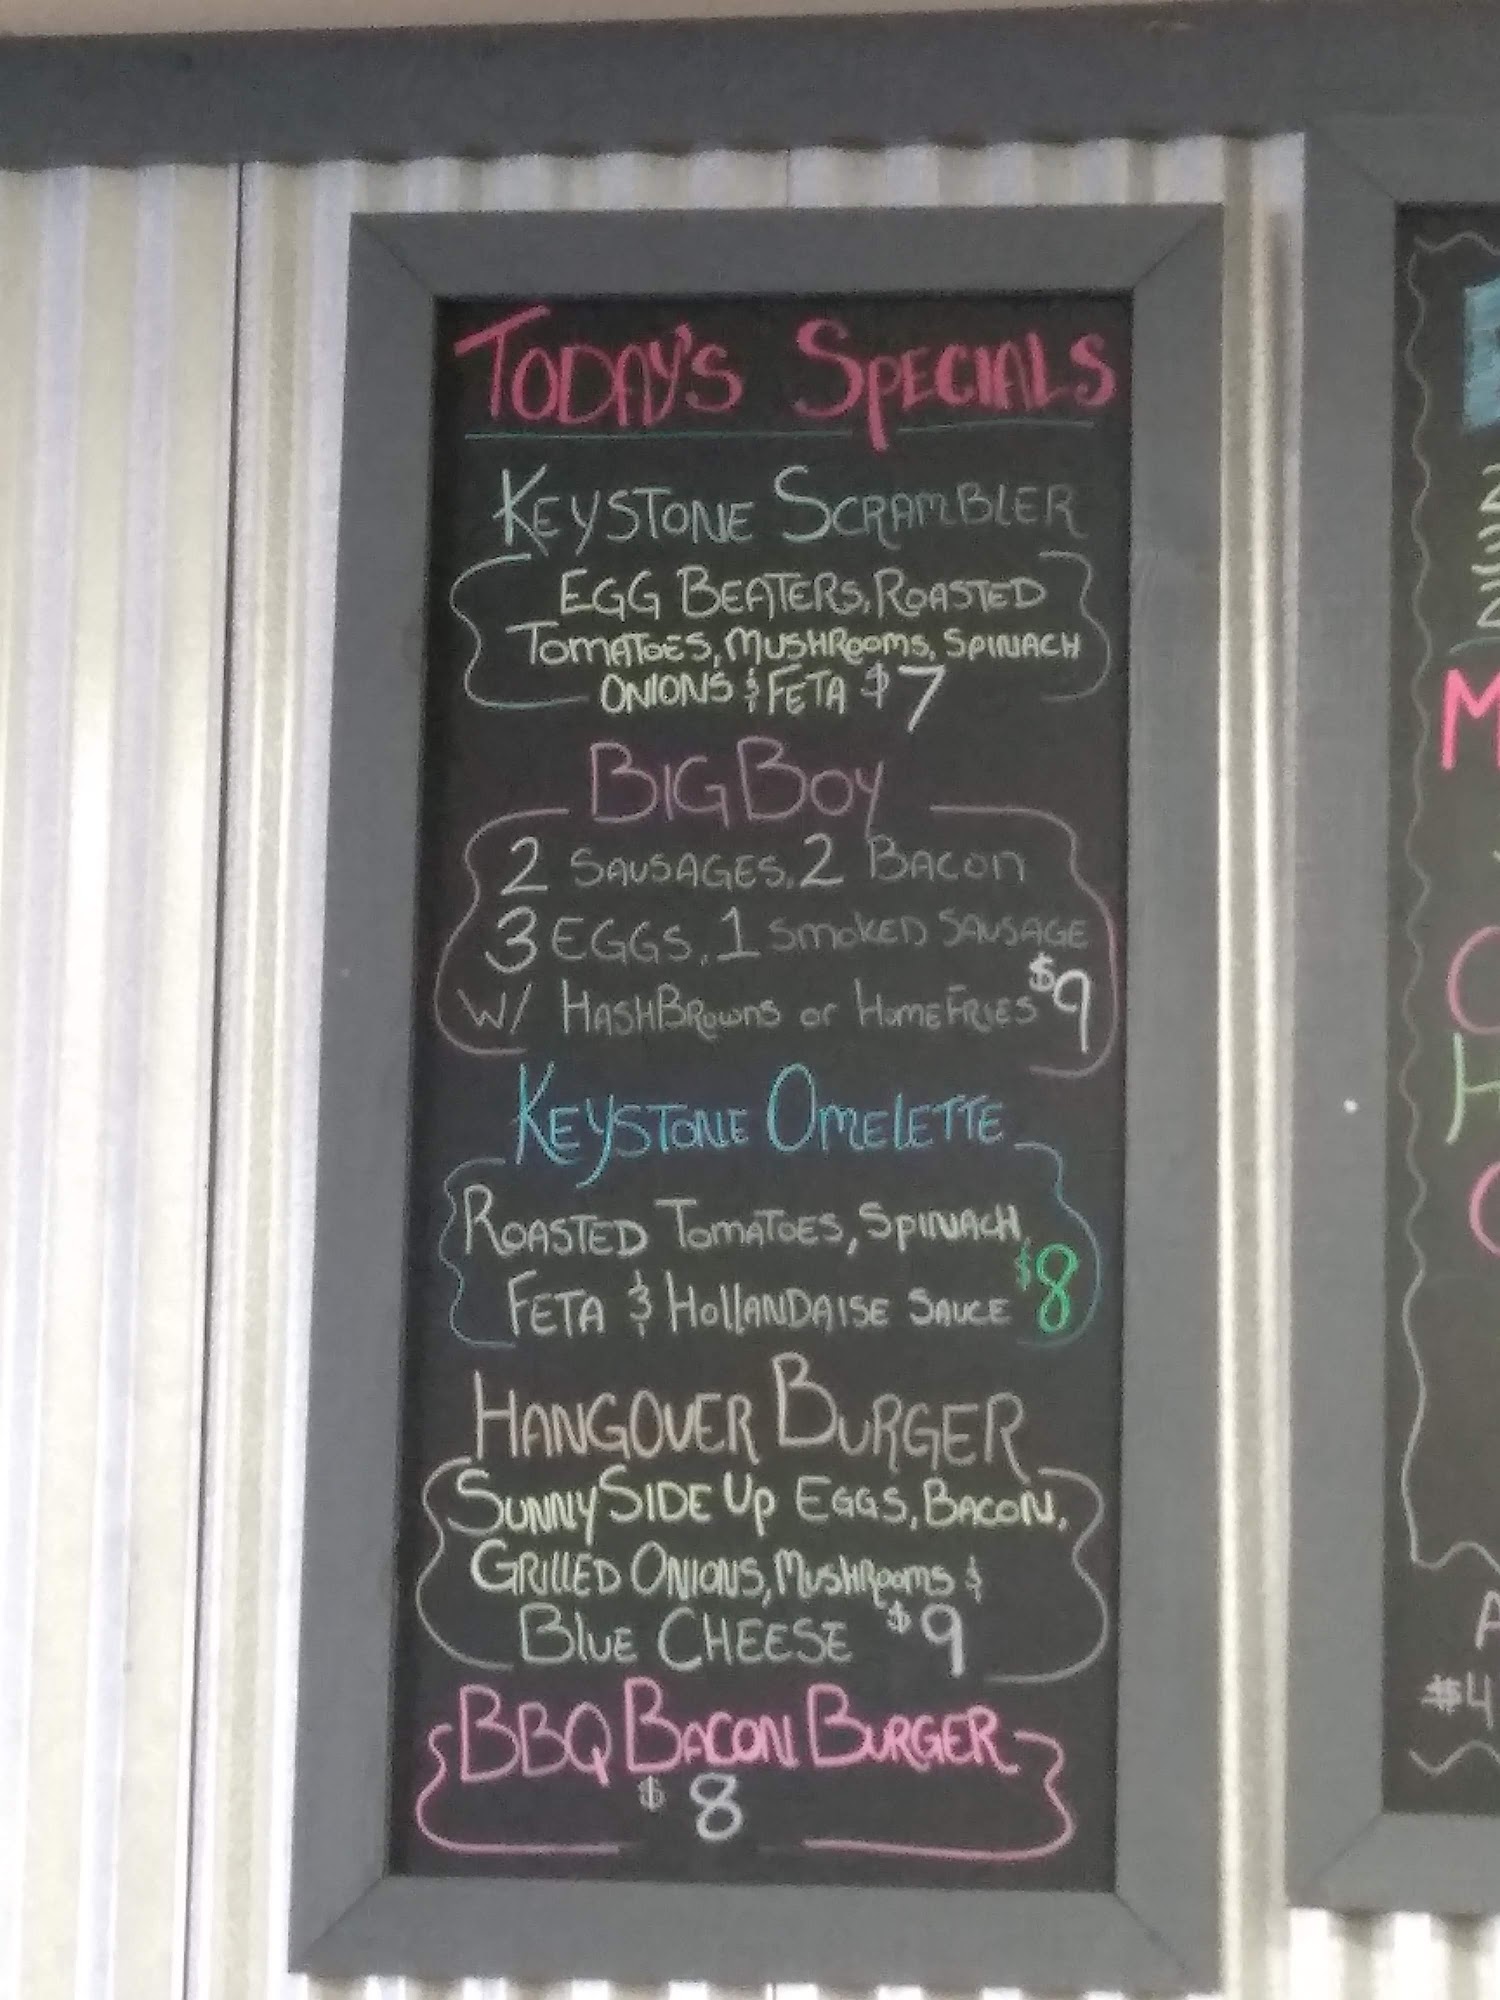 TODAY'S SPECIALS
KEYSTONE SCRAMBLER
EGG BEATERS, ROASTED
TOMATOES, MUSHROOMS, SPINACH
ONIONS & FETA $7
BIG BOY
2 SAUSAGES, 2 BACON
3 EGGS, 1 SMOKED SAUSAGE
W/ HASHBROWNS or HOMEFRIES $9
KEYSTONE OMELETTE
ROASTED TOMATOES, SPINACH,
FETA & HOLLANDAISE SAUCE $8
HANGOVER BURGER
SUNNY SIDE UP EGGS, BACON,
GRILLED ONIONS, MUSHROOMS &
BLUE CHEESE $9
BBQ BACON BURGER
$8
$4